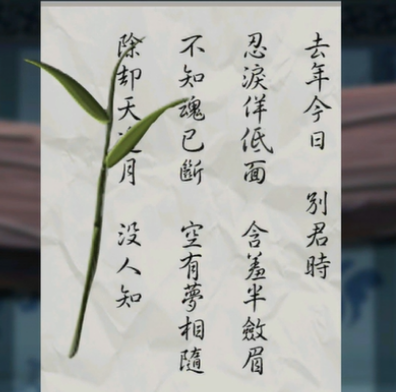 去年今日 別君時
忍淚佯低面 含羞半斂眉
不知魂已斷 空有夢相隨
除却天月 沒人知